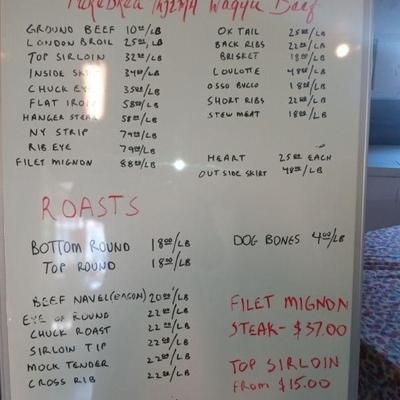 PureBred Tajima Wagyu Beef
GROUND BEEF 10.00/LB
LONDON BROIL 25.00/LB
TOP SIRLOIN 32.00/LB
INSIDE SKIRT 34.00/LB
CHUCK EYE 35.00/LB
FLAT IRON 58.00/LB
HANGER STEAK 58.00/LB
NY STRIP 79.00/LB
RIB EYE 79.00/LB
FILET MIGNON 88.00/LB
OX TAIL 25.00/LB
BACK RIBS 22.00/LB
BRISKET 18.00/LB
COULOTTE 48.00/LB
OSSO BUCCO 18.00/LB
SHORT RIBS 22.00/LB
STEW MEAT 18.00/LB
HEART 25.00 EACH
OUTSIDE SKIRT 48.00/LB
ROASTS
BOTTOM ROUND 18.00/LB
TOP ROUND 18.00/LB
DOG BONES 4.00/LB
BEEF NAVEL (BACON) 20.00/LB
EYE OF ROUND 22.00/LB
CHUCK ROAST 22.00/LB
SIRLOIN TIP 22.00/LB
MOCK TENDER 22.00/LB
CROSS RIB 22.00/LB
FILET MIGNON
STEAK- $37.00
TOP SIRLOIN
FROM $15.00